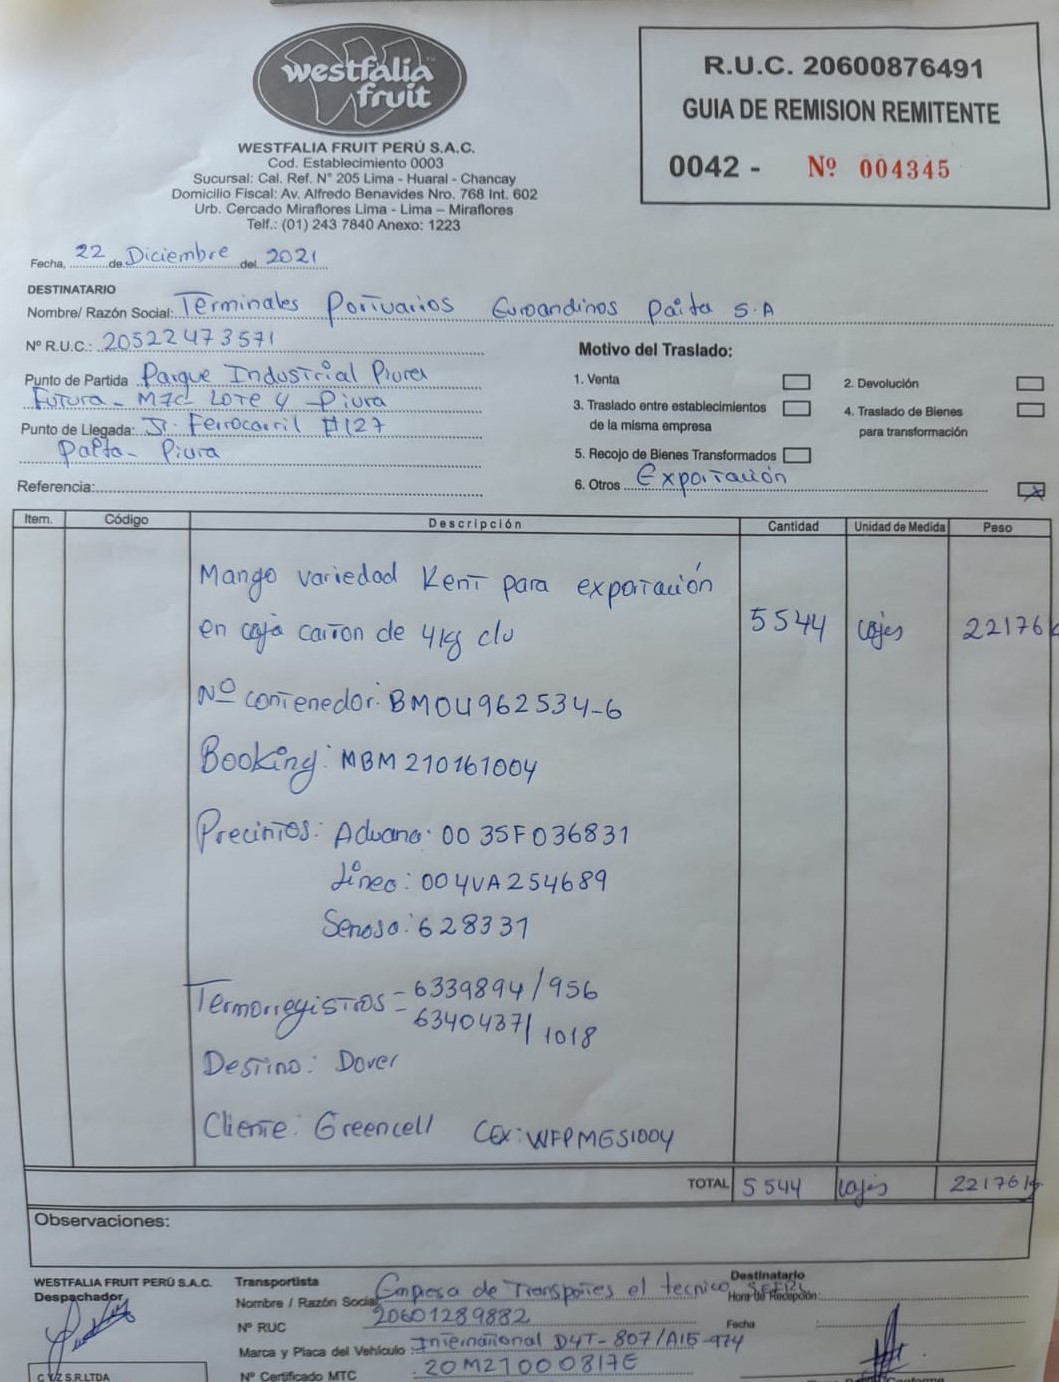 westfalia
fruit
WESTFALIA FRUIT PERÚ S.A.C.
Cod. Establecimiento 0003
Sucursal: Cal. Ref. N° 205 Lima - Huaral - Chancay
Domicilio Fiscal: Av. Alfredo Benavides Nro. 768 Int. 602
Urb. Cercado Miraflores Lima - Lima – Miraflores
Telf.: (01) 243 7840 Anexo: 1223
R.U.C. 20600876491
GUIA DE REMISION REMITENTE
0042 - Nº 004345
Fecha, 22 de Diciembre del 2021
DESTINATARIO
Nombre/ Razón Social: Terminales Portuarios Euroandinos Paita S.A
Nº R.U.C.: 20522473571
Punto de Partida Parque Industrial Piura
Futura - M7C Lote 4 - Piura
Punto de Llegada: Jr. Ferrocarril #127
Paita - Piura
Referencia:
Motivo del Traslado:
1. Venta
2. Devolución
3. Traslado entre establecimientos
de la misma empresa
4. Traslado de Bienes
para transformación
5. Recojo de Bienes Transformados
6. Otros Exportación X
Item. Código Descripción Cantidad Unidad de Medida Peso
Mango variedad Kent para exportación
en caja carton de 4kg c/u 5544 cajas 22176
Nº contenedor: BMOU962534-6
Booking: MBM210161004
Precintos: Aduana: 0035F036831
Línea: 004VA254689
Senasa: 628331
Termorregistros - 6339894/956
6340437/1018
Destino: Dover
Cliente: Greencell CEX: WFPMGS1004
TOTAL 5544 cajas 22176 kg
Observaciones:
WESTFALIA FRUIT PERÚ S.A.C.
Despachador
Transportista
Nombre / Razón Social Empresa de Transportes el tecnico
Nº RUC 20601289882
Marca y Placa del Vehículo : International D4T-807/A15-974
Nº Certificado MTC : 20M21000817E
Destinatario
Hora de Recepción:
Fecha
C Y Z S.R.LTDA